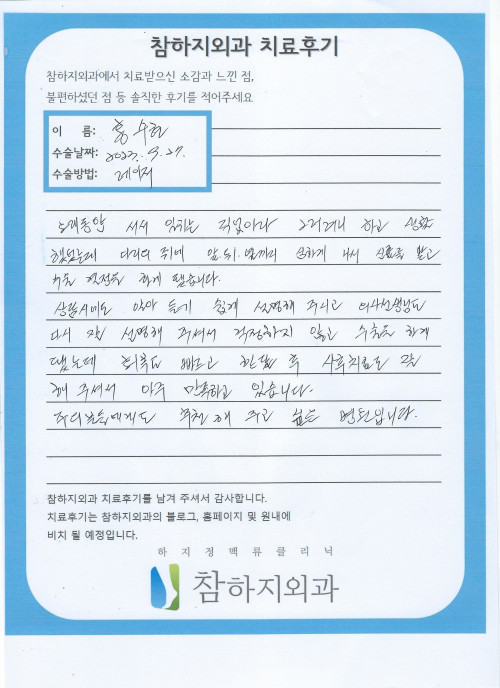 참하지외과 치료후기
참하지외과에서 치료받으신 소감과 느낀 점,
불편하셨던 점 등 솔직한 후기를 적어주세요
이 름: 홍수현
수술날짜: 2023. 9. 27.
수술방법: 레이저
오래동안 서서 일하는 직업이라 그러려니 하고 생활
했었는데 다리의 뒤에 앞, 뒤, 옆까지 심하게 나서 진료를 받고
수술 결정을 하게 됐습니다.
상담시에도 알아 듣기 쉽게 설명해 주시고 의사선생님도
다시 잘 설명해 주셔서 걱정하지 않고 수술을 하게
됐는데 회복도 빠르고 한달 후 사후치료도 잘
해 주셔서 아주 만족하고 있습니다.
주위분들에게도 추천해 주고 싶은 병원입니다.
참하지외과 치료후기를 남겨 주셔서 감사합니다.
치료후기는 참하지외과의 블로그, 홈페이지 및 원내에
비치 될 예정입니다.
하지정맥류클리닉
참하지외과